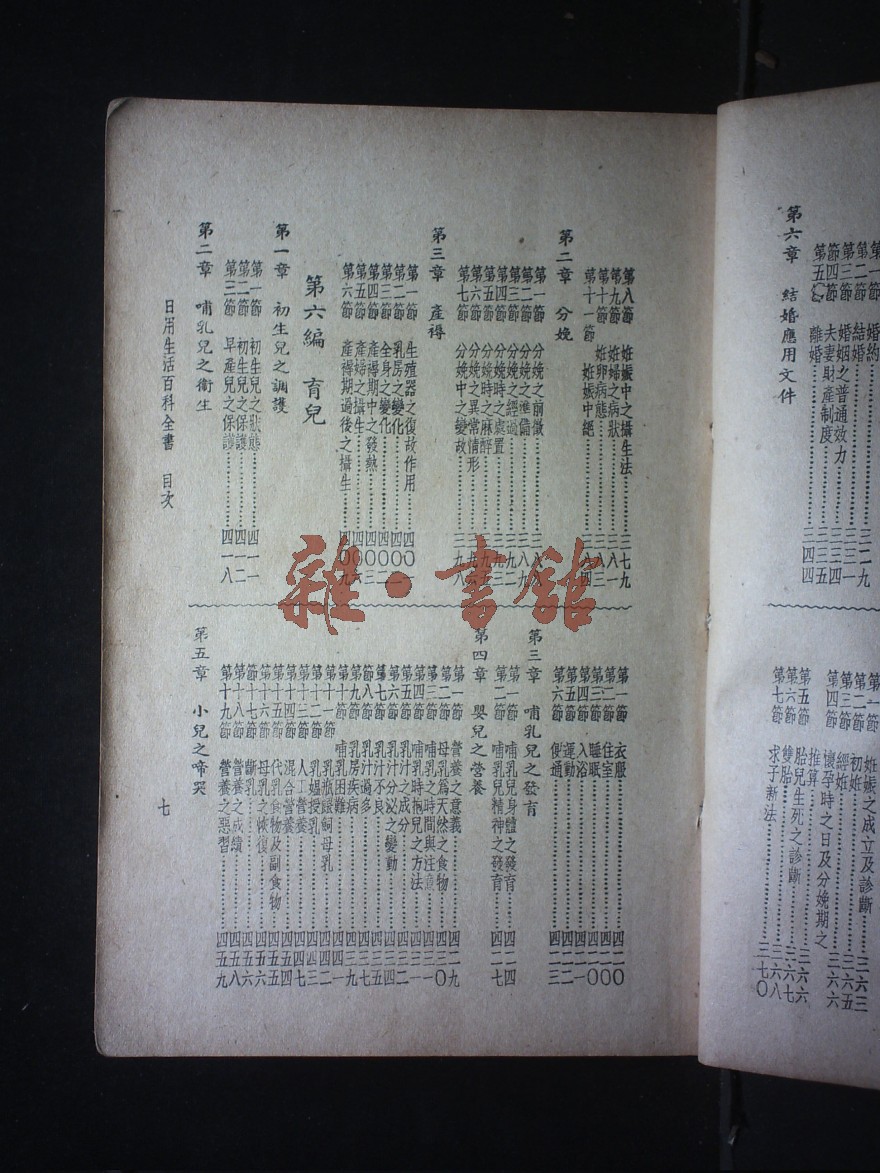 第六章 結婚應用文件
第八節 姙娠中之攝生法…………三七九
第九節 姙婦之病狀…………三八一
第十節 姙卵病態…………三八三
第十一節 姙娠中絕…………三八四
第二章 分娩
第一節 分娩之前徵
第二節 分娩之準備
第三節 分娩之經過…………三九二
第四節 分娩時之處置
第五節 分娩時之麻醉
第六節 分娩之異常情形
第七節 分娩中之變故…………三九八
第三章 產褥
第一節 生殖器之復故作用
第二節 乳房之變化
第三節 全身之變化
第四節 產褥期中之發熱
第五節 產婦之攝生
第六節 產褥期過後之攝生…………四〇九
第六編 育兒
第一章 初生兒之調護
第一節 初生兒之狀態…………四一一
第二節 初生兒之保護…………四一二
第三節 早產兒之保護…………四一八
第二章 哺乳兒之衛生
第一節 衣服…………四二〇
第二節 住室…………四二〇
第三節 睡眠…………四二〇
第四節 入浴…………四二一
第五節 運動…………四二二
第六節 便通…………四二三
第三章 哺乳兒之發育
第一節 哺乳兒身體之發育…………四二四
第二節 哺乳兒精神之發育…………四二七
第四章 嬰兒之營養
第一節 營養之意義…………四二九
第二節 母乳爲天然之食物…………四三〇
第三節 哺乳之時間與注意…………四三一
第四節 哺乳時抱兒之方法
第五節 乳汁之成分…………四三二
第六節 乳汁分泌之變動
第七節 乳汁不良…………四三五
第八節 乳汁過多
第九節 乳房疾病…………四三九
第十節 哺乳困難…………四四一
第十一節 乳瓶餵飼母乳
第十二節 乳媼授乳…………四四三
第十三節 人工營養…………四四七
第十四節 混合營養…………四五四
第十五節 代乳食物及副食物…………四五五
第十六節 母乳之恢復…………四五六
第十七節 斷乳…………四五六
第十八節 營養之成績…………四五八
第十九節 營養之惡習…………四五九
第五章 小兒之啼哭
日用生活百科全書 目次
七
第一節 婚約
第二節 結婚…………三二九
第三節 婚姻之普通效力…………三三一
第四節 夫妻財產制度…………三三四
第五節 離婚
第一節 姙娠之成立及診斷…………三六三
第二節 初姙
第三節 經姙…………三六五
第四節 懷孕時之日及分娩期之
推算…………三六六
第五節 胎兒生死之診斷…………三六六
第六節 雙胎…………三六七
第七節 求子新法…………三七〇
雜·書館